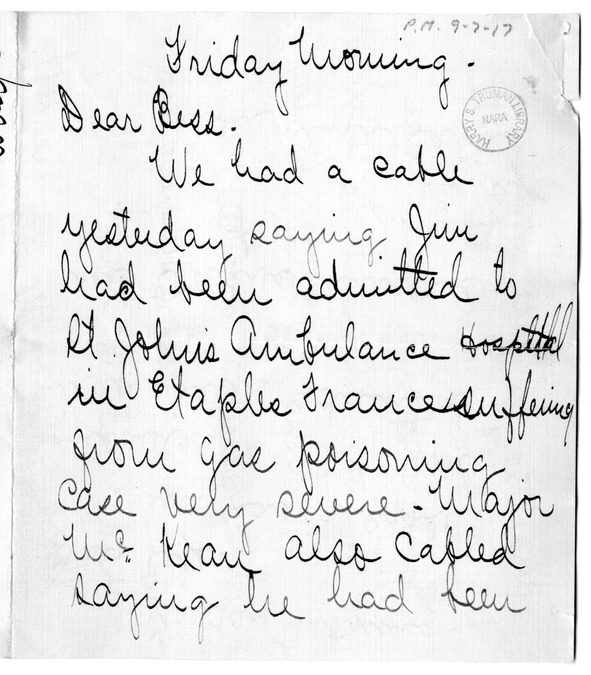 P.M. 9-7-17
Friday Morning.
HARRY S. TRUMAN LIBRARY
NARA
Dear Bess.
We had a cable
yesterday saying Jim
had been admitted to
St. John's Ambulance Hospital
in Etaples France suffering
from gas poisoning
case very severe - Major
Mc. Kean also cabled
saying he had been